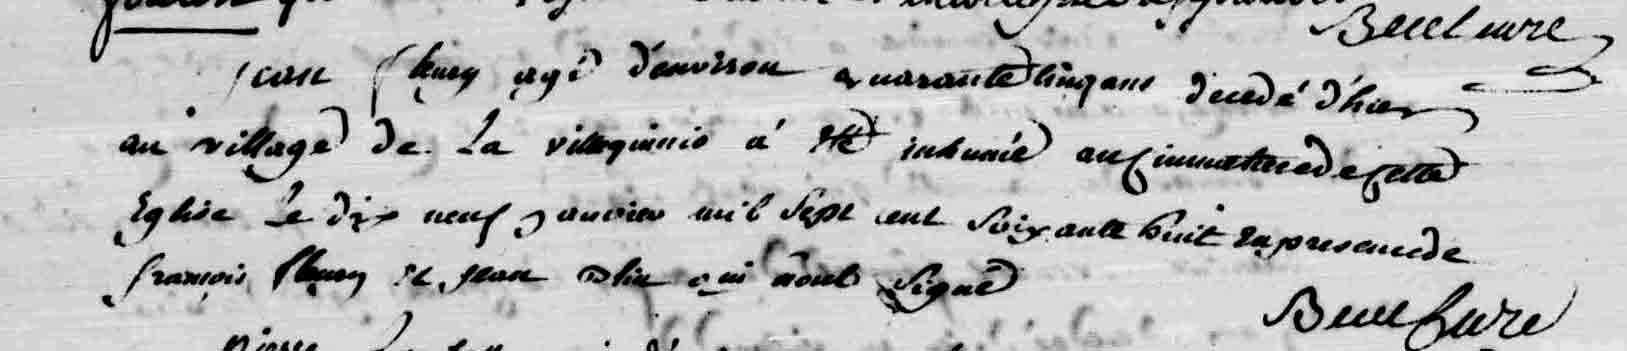 Becel curé
jean fleury agé d'environ quarante cinq ans decedé d'hier
au village de La villeguinio á été inhumé au cimmetiere de cette
Eglise Le dix neuf janvier mil sept cent soixante huit en presence de
françois fleury et jean qui n'ont signé
Becel Curé